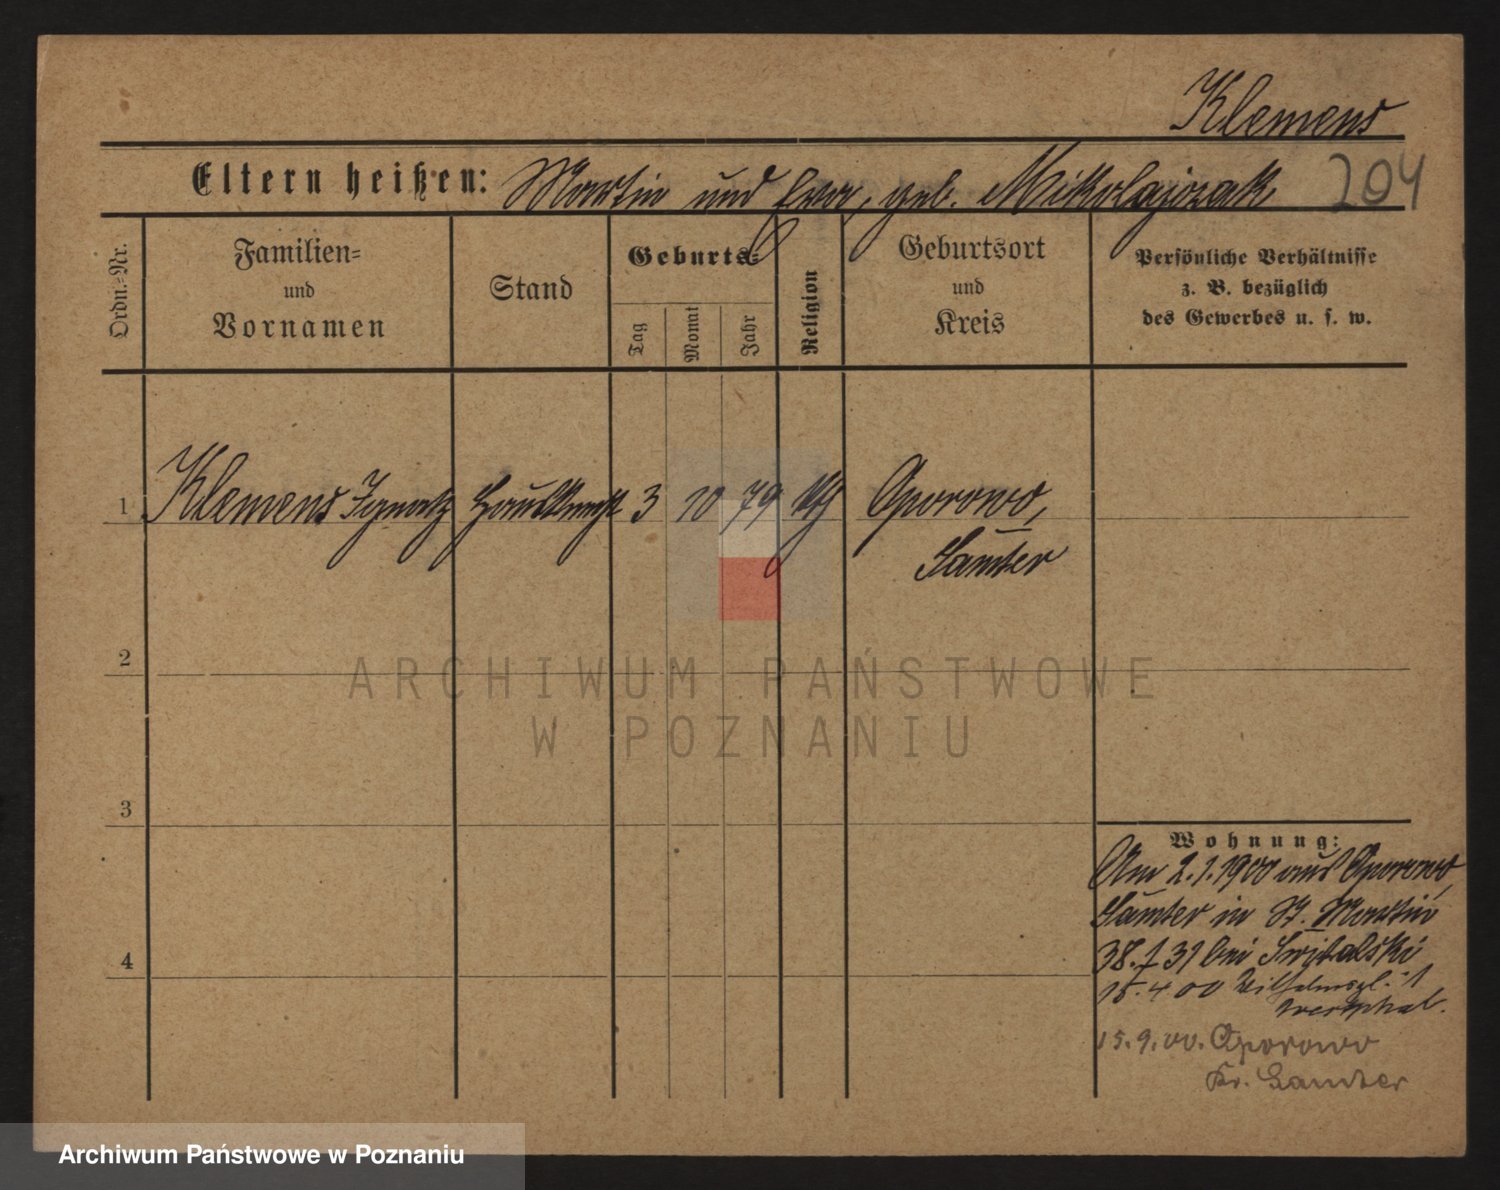 Klemens
Eltern heißen: Martin und Eva, geb. Mikolajczak 204
Ordn.=Nr.
Familien=
und
Vornamen
Stand
Geburts=
Tag
Monat
Jahr
Religion
Geburtsort
und
Kreis
Persönliche Verhältnisse
z. B. bezüglich
des Gewerbes u. s. w.
1 Klemens Ignatz Hausknecht 3 10 79 kth Oporowo,
Samter
2
3
4
Wohnung:
Am 2.1.1900 aus Oporowo,
Samter in St. Martin
38. I 31 bei Switalski
15.4 00 Wilhelmspl. 1
Westphal.
15.9.00. Oporowo
Kr. Samter
ARCHIWUM PAŃSTWOWE
W POZNANIU
Archiwum Państwowe w Poznaniu